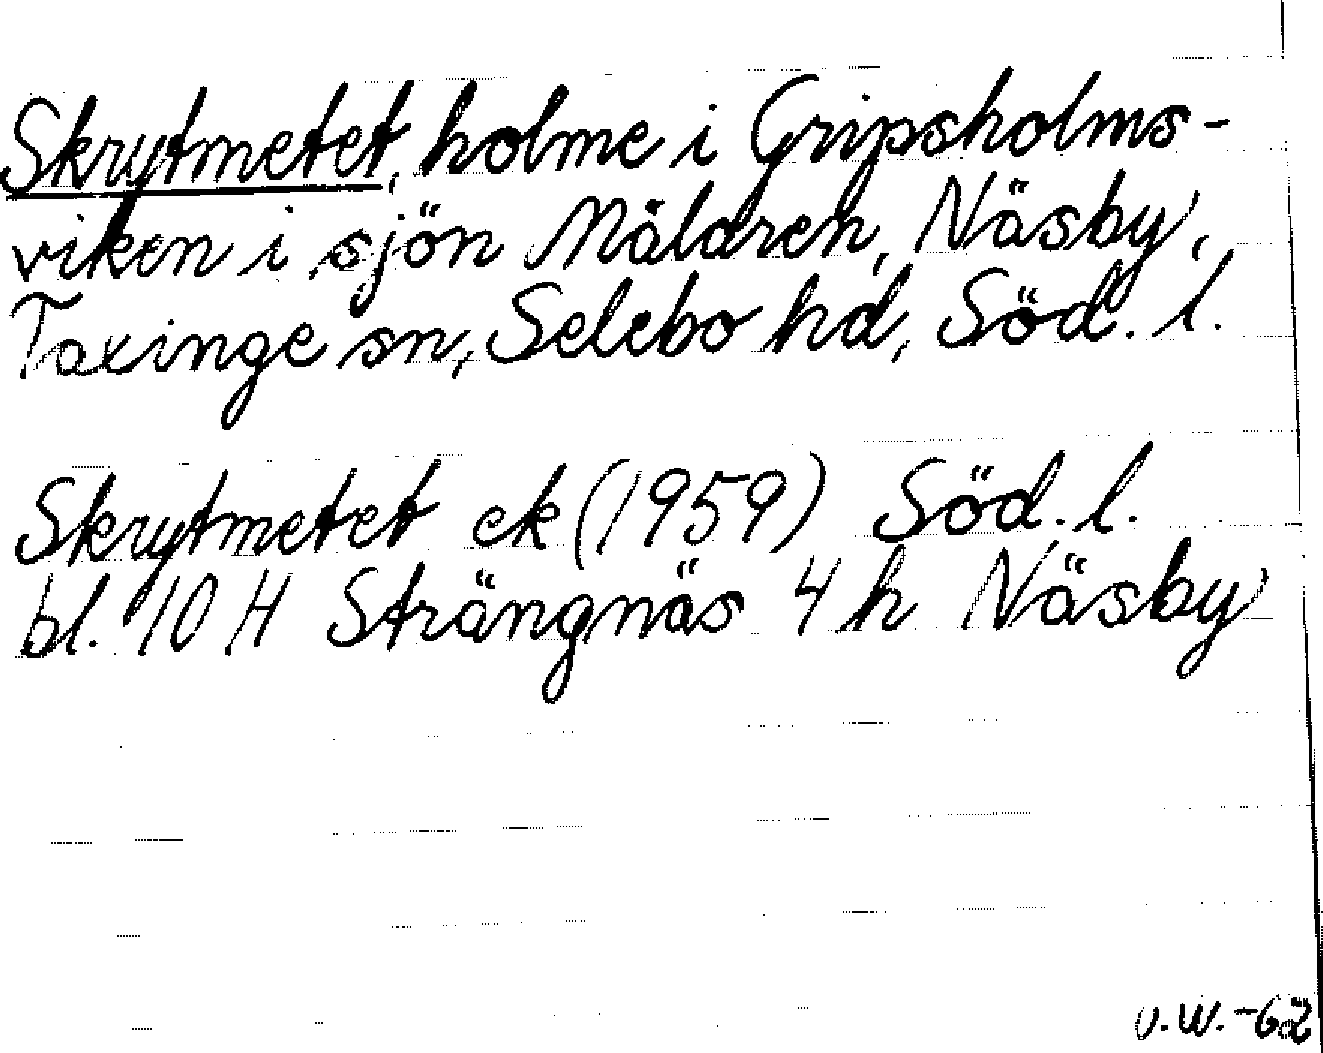 Skrytmetet, holme i Gripsholms-
viken i sjön Mälaren, Näsby,
Taxinge sn, Selebo hd, Söd. l.
Skrytmetet ek (1959) Söd. l.
bl. 10 H Strängnäs 4 h Näsby
U.W. -62